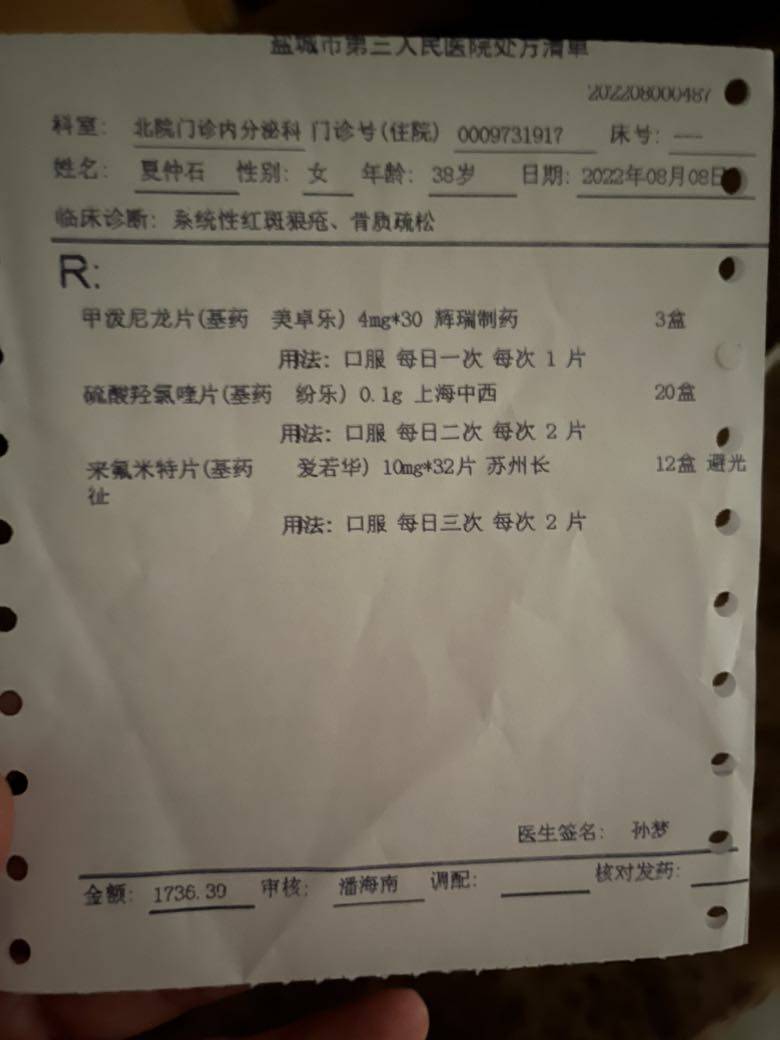 盐城市第三人民医院处方清单
202208000487
科室： 北院门诊内分泌科 门诊号(住院) 0009731917 床号： ——
姓名： 夏仲石 性别： 女 年龄： 38岁 日期： 2022年08月08日
临床诊断： 系统性红斑狼疮、骨质疏松
R:
甲泼尼龙片(基药 美卓乐) 4mg*30 辉瑞制药 3盒
用法： 口服 每日一次 每次 1 片
硫酸羟氯喹片(基药 纷乐) 0.1g 上海中西 20盒
用法： 口服 每日二次 每次 2 片
来氟米特片(基药 爱若华) 10mg*32片 苏州长 12盒 避光
征
用法： 口服 每日三次 每次 2 片
医生签名： 孙梦
金额： 1736.39 审核： 潘海南 调配： 核对发药：